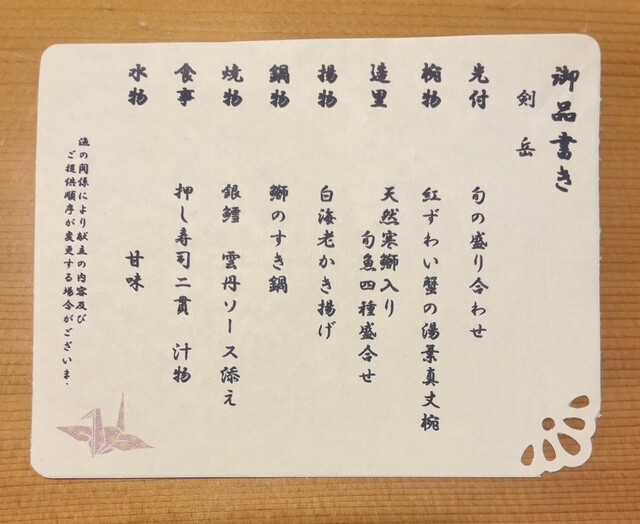 御品書き
剣岳
先付　旬の盛り合わせ
椀物　紅ずわい蟹の湯葉真丈椀
造里　天然寒鰤入り
旬魚四種盛合せ
揚物　白海老かき揚げ
鍋物　鰤のすき鍋
焼物　銀鱈　雲丹ソース添え
食事　押し寿司二貫　汁物
水物　甘味
漁の関係により献立の内容及び
ご提供順序が変更する場合がございま.